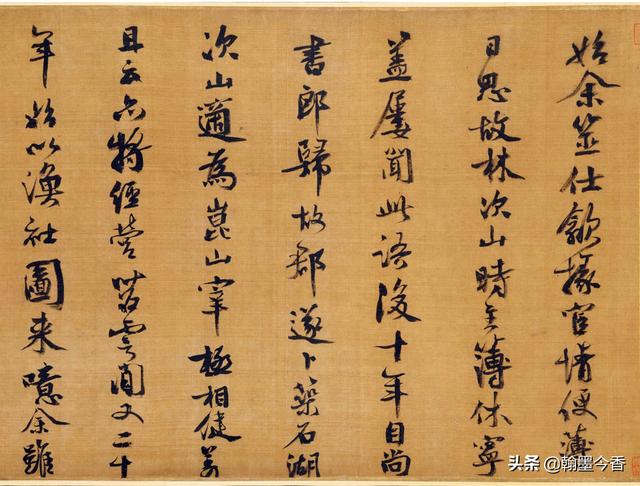 始余筮仕歙掾宦情便薄
日思故林次山時主薄休寧
盖屢聞此語後十年自尚
書郎歸故郡遂卜築石湖
次山適為崑山宰極相健羡
且云亦將經營苕霅間又二十
年始以漁社圖来噫余雖
头条 @翰墨今香